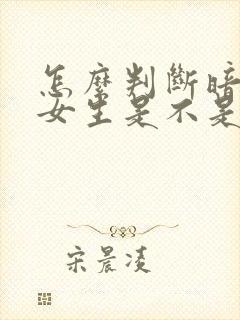 怎麼判斷暗
女生是不是
宋晨凌